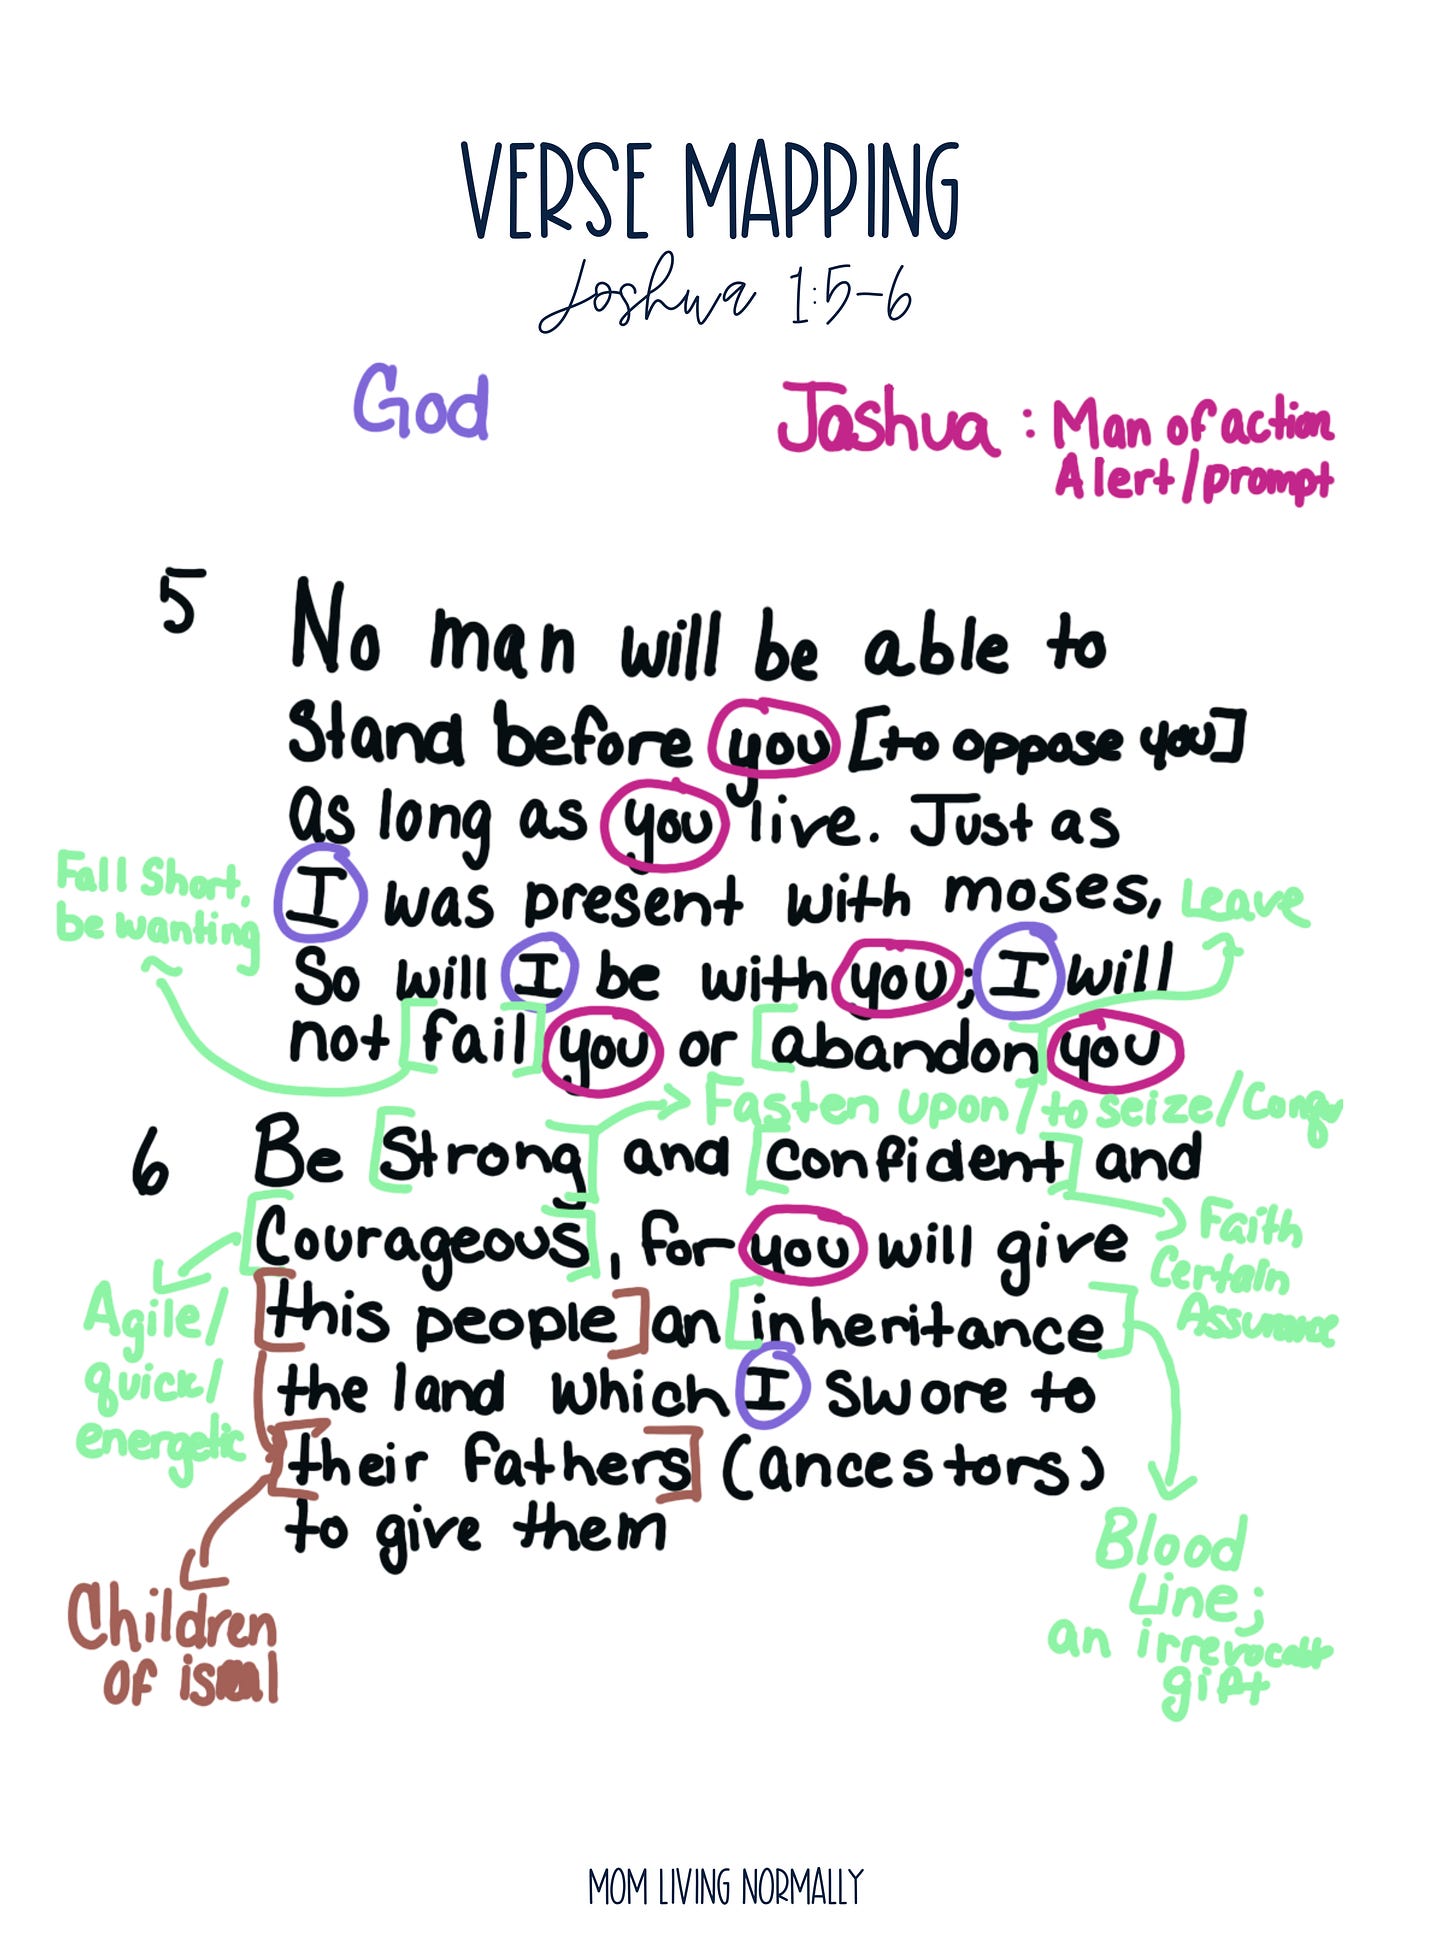 VERSE MAPPING
Joshua 1:5-6
God
Joshua : Man of action
Alert/prompt
5 No man will be able to
Stand before you [to oppose you]
as long as you live. Just as
Fall Short,
be wanting
I was present with moses,
Leave
So will I be with you; I will
not [fail] you or [abandon] you
Fasten upon/to seize/
6 Be [Strong] and [Confident] and
Faith
Certain
Assurance
[Courageous], for you will give
Agile/
quick/
energetic
[this people] an [inheritance]
the land which I swore to
[their fathers] (ancestors)
to give them
Blood
Line;
an
gift
Children
of
MOM LIVING NORMALLY